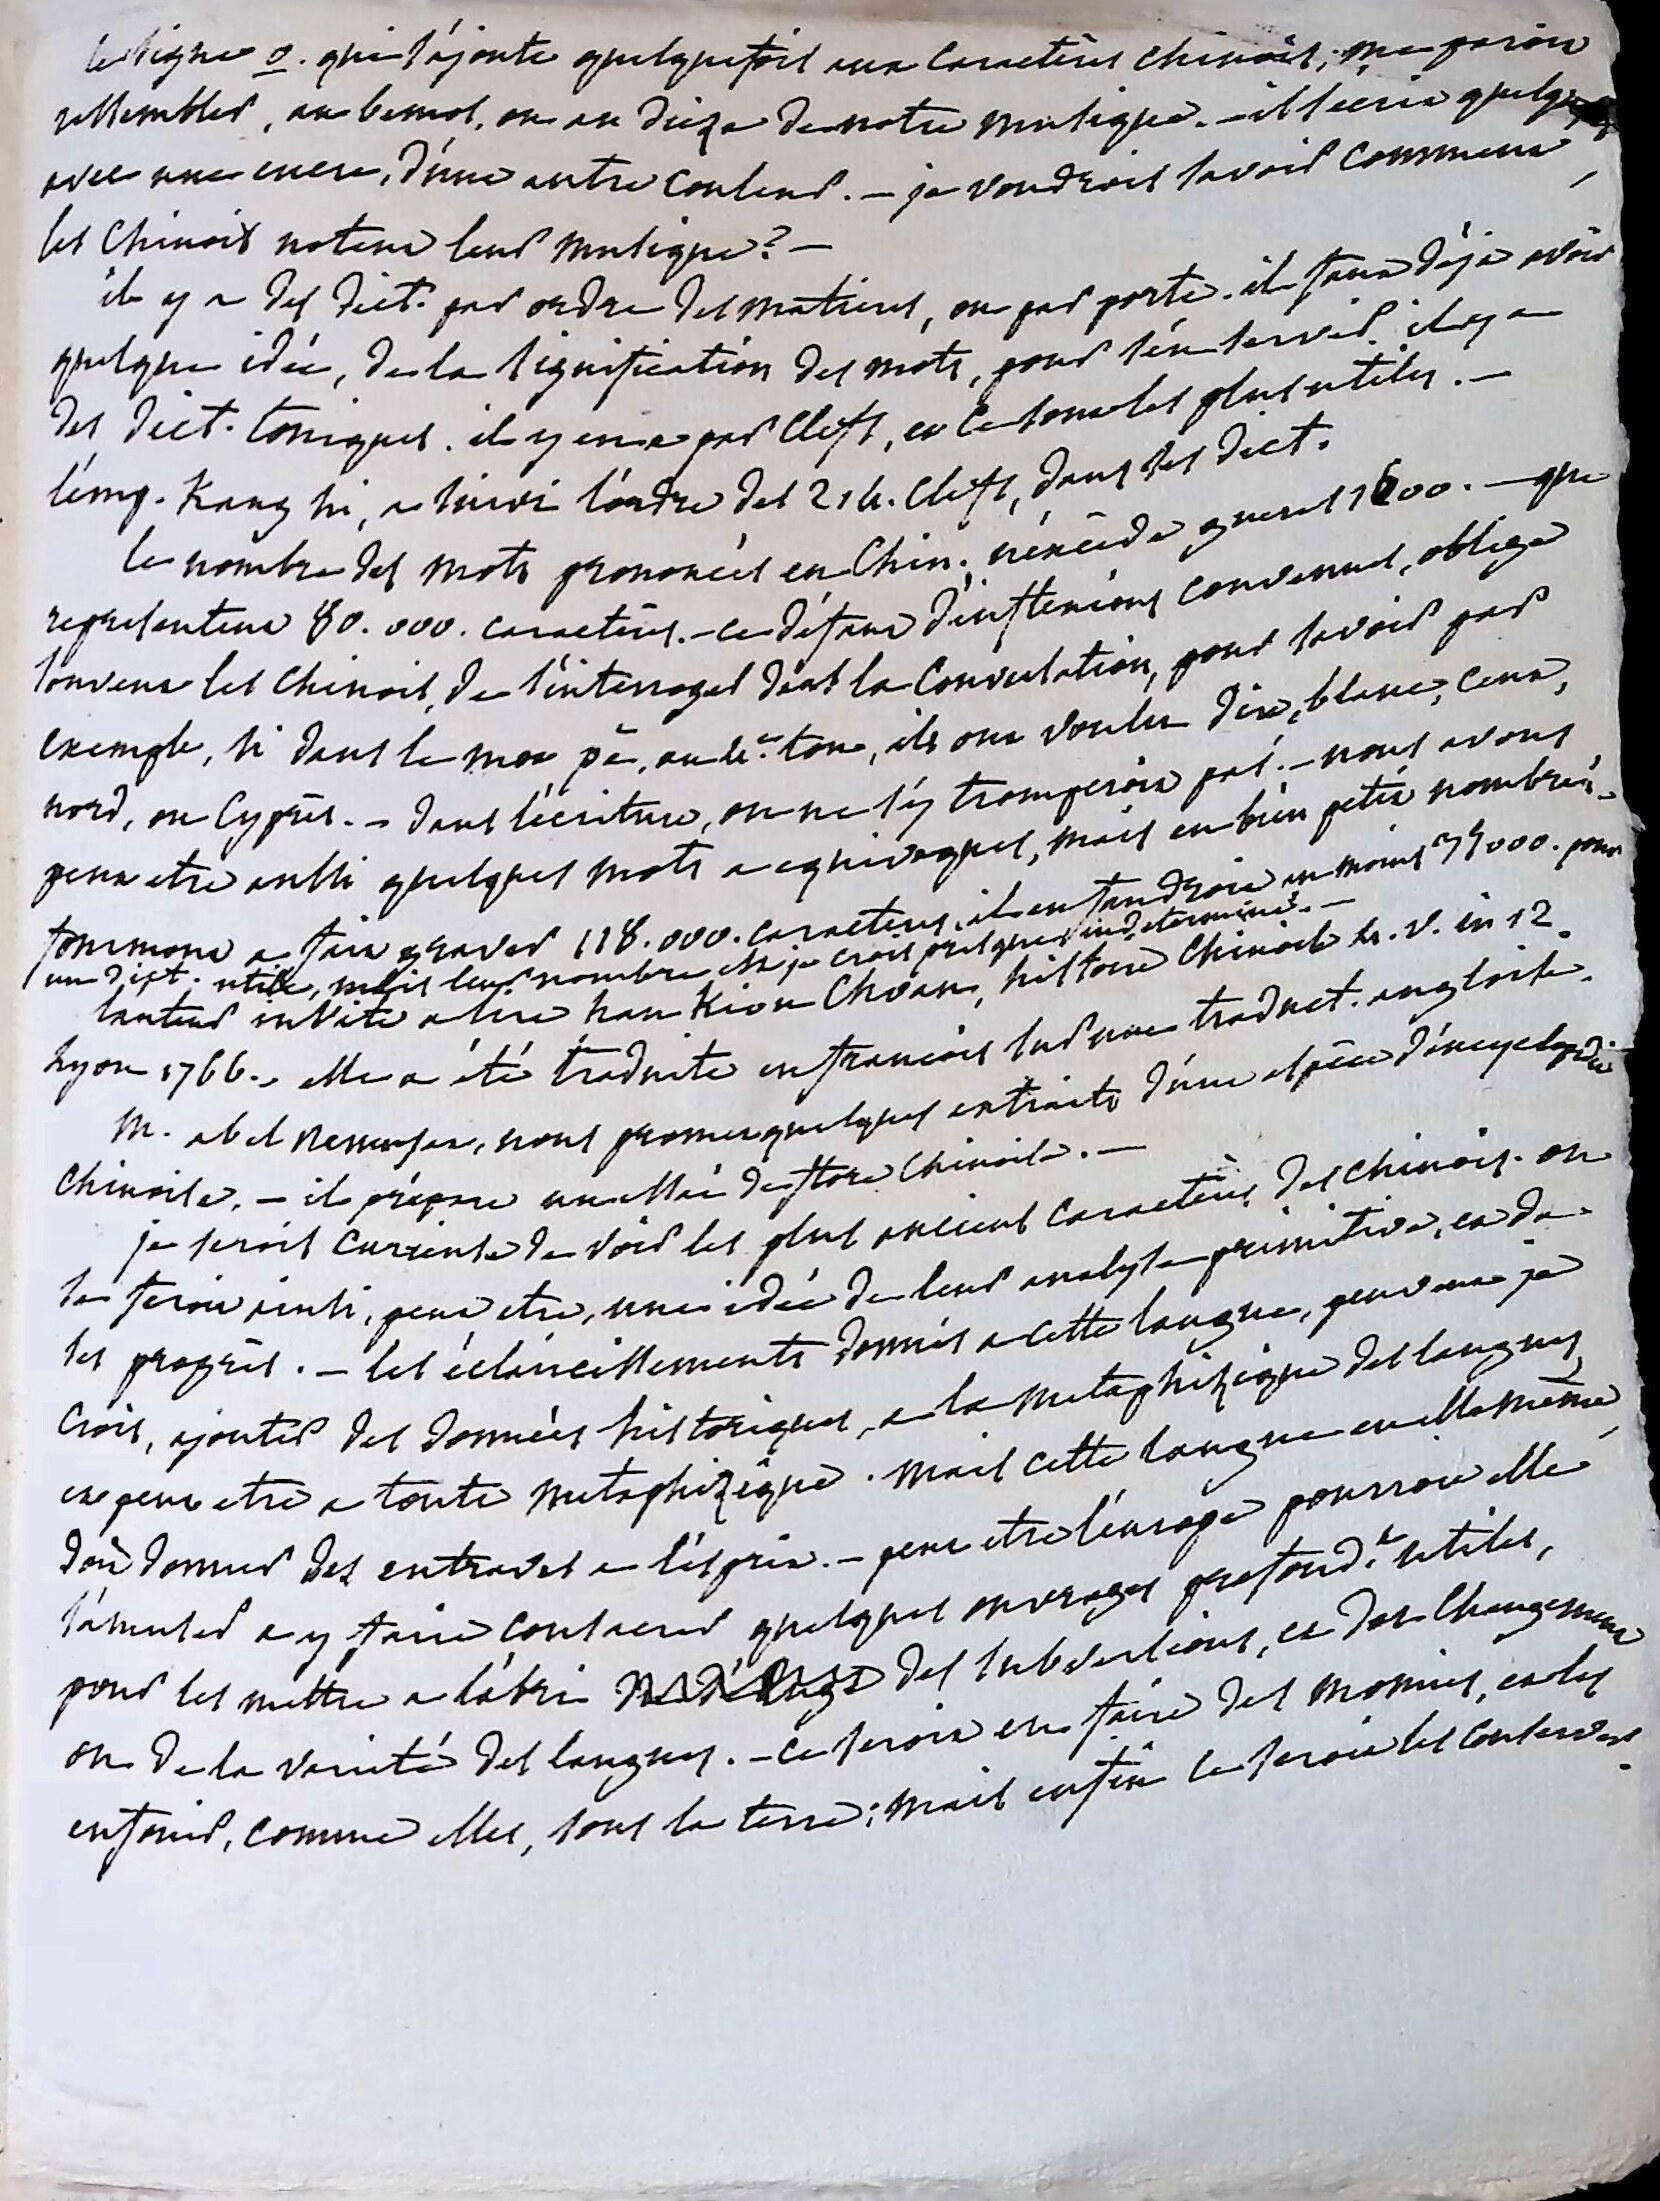 le signe o. qui s'ajoute quelquefois aux caractères chinois; me paroit
ressembler, au bemol, ou au diéze de notre musique. - il s'ecrit
avec une encre, d'une autre couleur. - je voudrois savoir comment
les Chinois notent leur musique? -
il y a des dict. par ordre des matieres, ou par porte. il faut déja avoir
quelque idée, de la signification des mots, pour s'en servir. il y a
des dict. toniques. il y en a par clefs, et ce sont les plus utiles. -
l'emp. Kang hi, a suivi l'ordre des 214. clefs, dans ses dict.
le nombre des mots prononcés en Chin. n'excède gueres 1600. - que
representent 80.000. caractères. - ce défaut d'inflexions convenues, oblige
souvent les Chinois, de s'interroger dans la conversation, pour savoir par
exemple, si dans le mot pe, au 4e. ton, ils ont voulu dire, blanc, cent,
nord, ou cyprès. - dans l'écriture, on ne s'y tromperoit pas. - nous avons
peut etre aussi quelques mots a equivoques, mais en bien petit nombre. -
fourmont a fait graver 118.000. caracteres, il en faudroit au moins 35000. pour
un dict. utile, mais leur nombre est je crois presque indeterminé. -
l'auteur invite a lire hau Kiou Choan, histoire Chinoise 4. v. in 12.
Lyon 1766. - elle a été traduite en françois sur une traduct. angloise.
M. abel Remusat, nous promet quelques extraits d'une espèce d'encyclopédie
chinoise. - il prépare un essai de flore Chinoise. -
je serois curieuse de voir les plus anciens caractères des chinois. on
se feroit ainsi, peut etre, une idée de leur analyse primitive, et de
ses progrès. - les éclaircissements donnés a cette langue, peuvent je
crois, ajouter des données historiques, a la metaphizique des langues,
et peut etre a toute metaphizique. mais cette langue en elle même,
doit donner des entraves a l'ésprit. - peut etre l'europe pourroit elle
s'amuser a y faire consacrer quelques ouvrages profond.t utiles,
pour les mettre a l'abri des subversions, et des changemens
ou de la varieté des langues. - ce seroit en faire des momies, et les
enfouir, comme elles, sous la terre; mais enfin ce seroit les conserver.